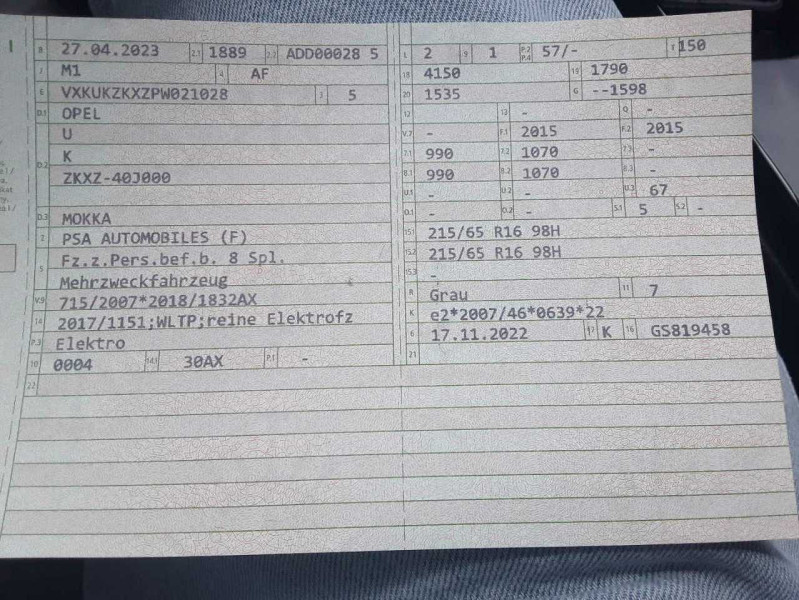 B 27.04.2023 2.1 1889 2.2 ADD00028 5
J M1 4 AF
E VXKUKZKXZPW021028 3 5
D.1 OPEL
U
D.2 K
ZKXZ-40J000
D.3 MOKKA
2 PSA AUTOMOBILES (F)
5 Fz.z.Pers.bef.b. 8 Spl.
Mehrzweckfahrzeug
V.9 715/2007*2018/1832AX
14 2017/1151;WLTP;reine Elektrofz
P.3 Elektro
10 0004 14.1 30AX P.1 -
22
L 2 9 1 P.2 P.4 57/- T 150
18 4150 19 1790
20 1535 G --1598
12 - 13 - Q -
V.7 - F.1 2015 F.2 2015
7.1 990 7.2 1070 7.3 -
8.1 990 8.2 1070 8.3 -
U.1 - U.2 - U.3 67
O.1 - O.2 - S.1 5 S.2 -
15.1 215/65 R16 98H
15.2 215/65 R16 98H
15.3 -
R Grau 11 7
K e2*2007/46*0639*22
6 17.11.2022 17 K 16 GS819458
21